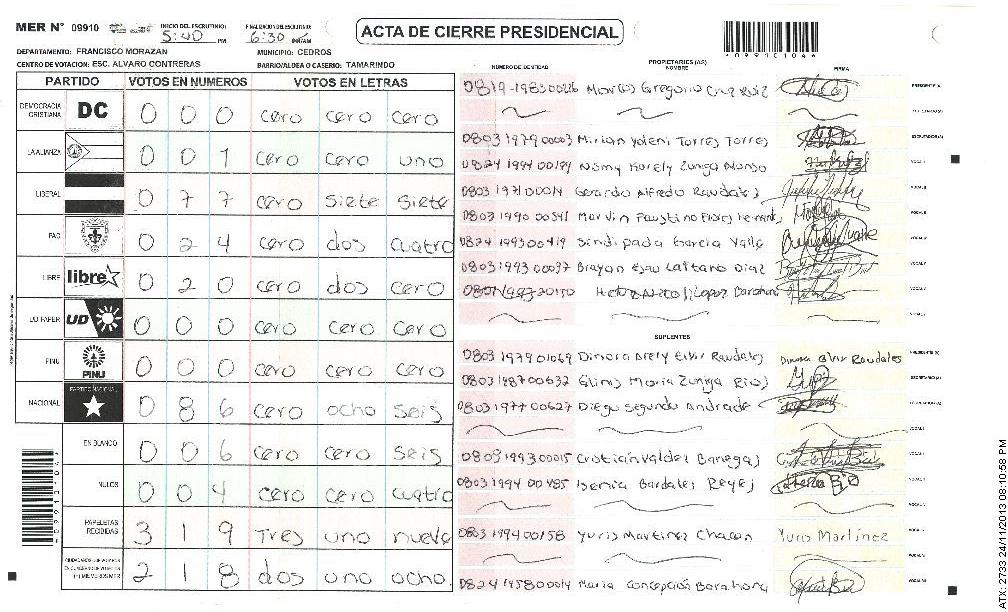 MER N° 09910 INICIO DEL ESCRUTINIO 5:40 PM FINALIZACION DEL ESCRUTINIO 6:30
ACTA DE CIERRE PRESIDENCIAL
DEPARTAMENTO: FRANCISCO MORAZAN MUNICIPIO: CEDROS
CENTRO DE VOTACION: ESC. ALVARO CONTRERAS BARRIO/ALDEA O CASERIO: TAMARINDO
PARTIDO VOTOS EN NUMEROS VOTOS EN LETRAS
DEMOCRACIA CRISTIANA DC 0 0 0 cero cero cero
LA ALIANZA 0 0 1 cero cero uno
LIBERAL 0 7 7 cero siete siete
PAC 0 2 4 cero dos cuatro
LIBRE libre 0 2 0 cero dos cero
UD FAPER UD 0 0 0 cero cero cero
PINU PINU 0 0 0 cero cero cero
NACIONAL PARTIDO NACIONAL 0 8 6 cero ocho seis
EN BLANCO 0 0 6 cero cero seis
NULOS 0 0 4 cero cero cuatro
PAPELETAS RECIBIDAS 3 1 9 Tres uno nueve
2 1 8 dos uno ocho
NUMERO DE IDENTIDAD PROPIETARIOS (AS) NOMBRE FIRMA
0819-1983 00226 Marcos Gregorio Cruz Ruiz
0803 1979 00003 Mirian Yoleni Torres Torres
0824 1994 00194 Nomy Karely Zuniga Alonso
0803 1971 00014 Gerardo Alfredo Raudales
0803 1990 00341 Marvin Faustino Flores
0824 1993 00419 Sindi pada Garcia Valle
0803 1993 00037 Brayan Esau Cattano Diaz
Lopez Barahona
SUPLENTES
0803 1979 01069 Dinora Arely Elvir Raudales Dinora Elvir Raudales
0803 1987 00632 Glims Maria Zuniga Rios
0803 1977 00627 Diego Segundo Andrade
0803 1993 00015 Cristian Valdez Banegas
0803 1994 00485 Bardales Reyes
0803 1994 00158 Yuris Martinez Chacon Yuris Martinez
0824 1958 00014 Maria Concepcion Barahona
ATX-2733 24/11/2013 08:10:58 PM